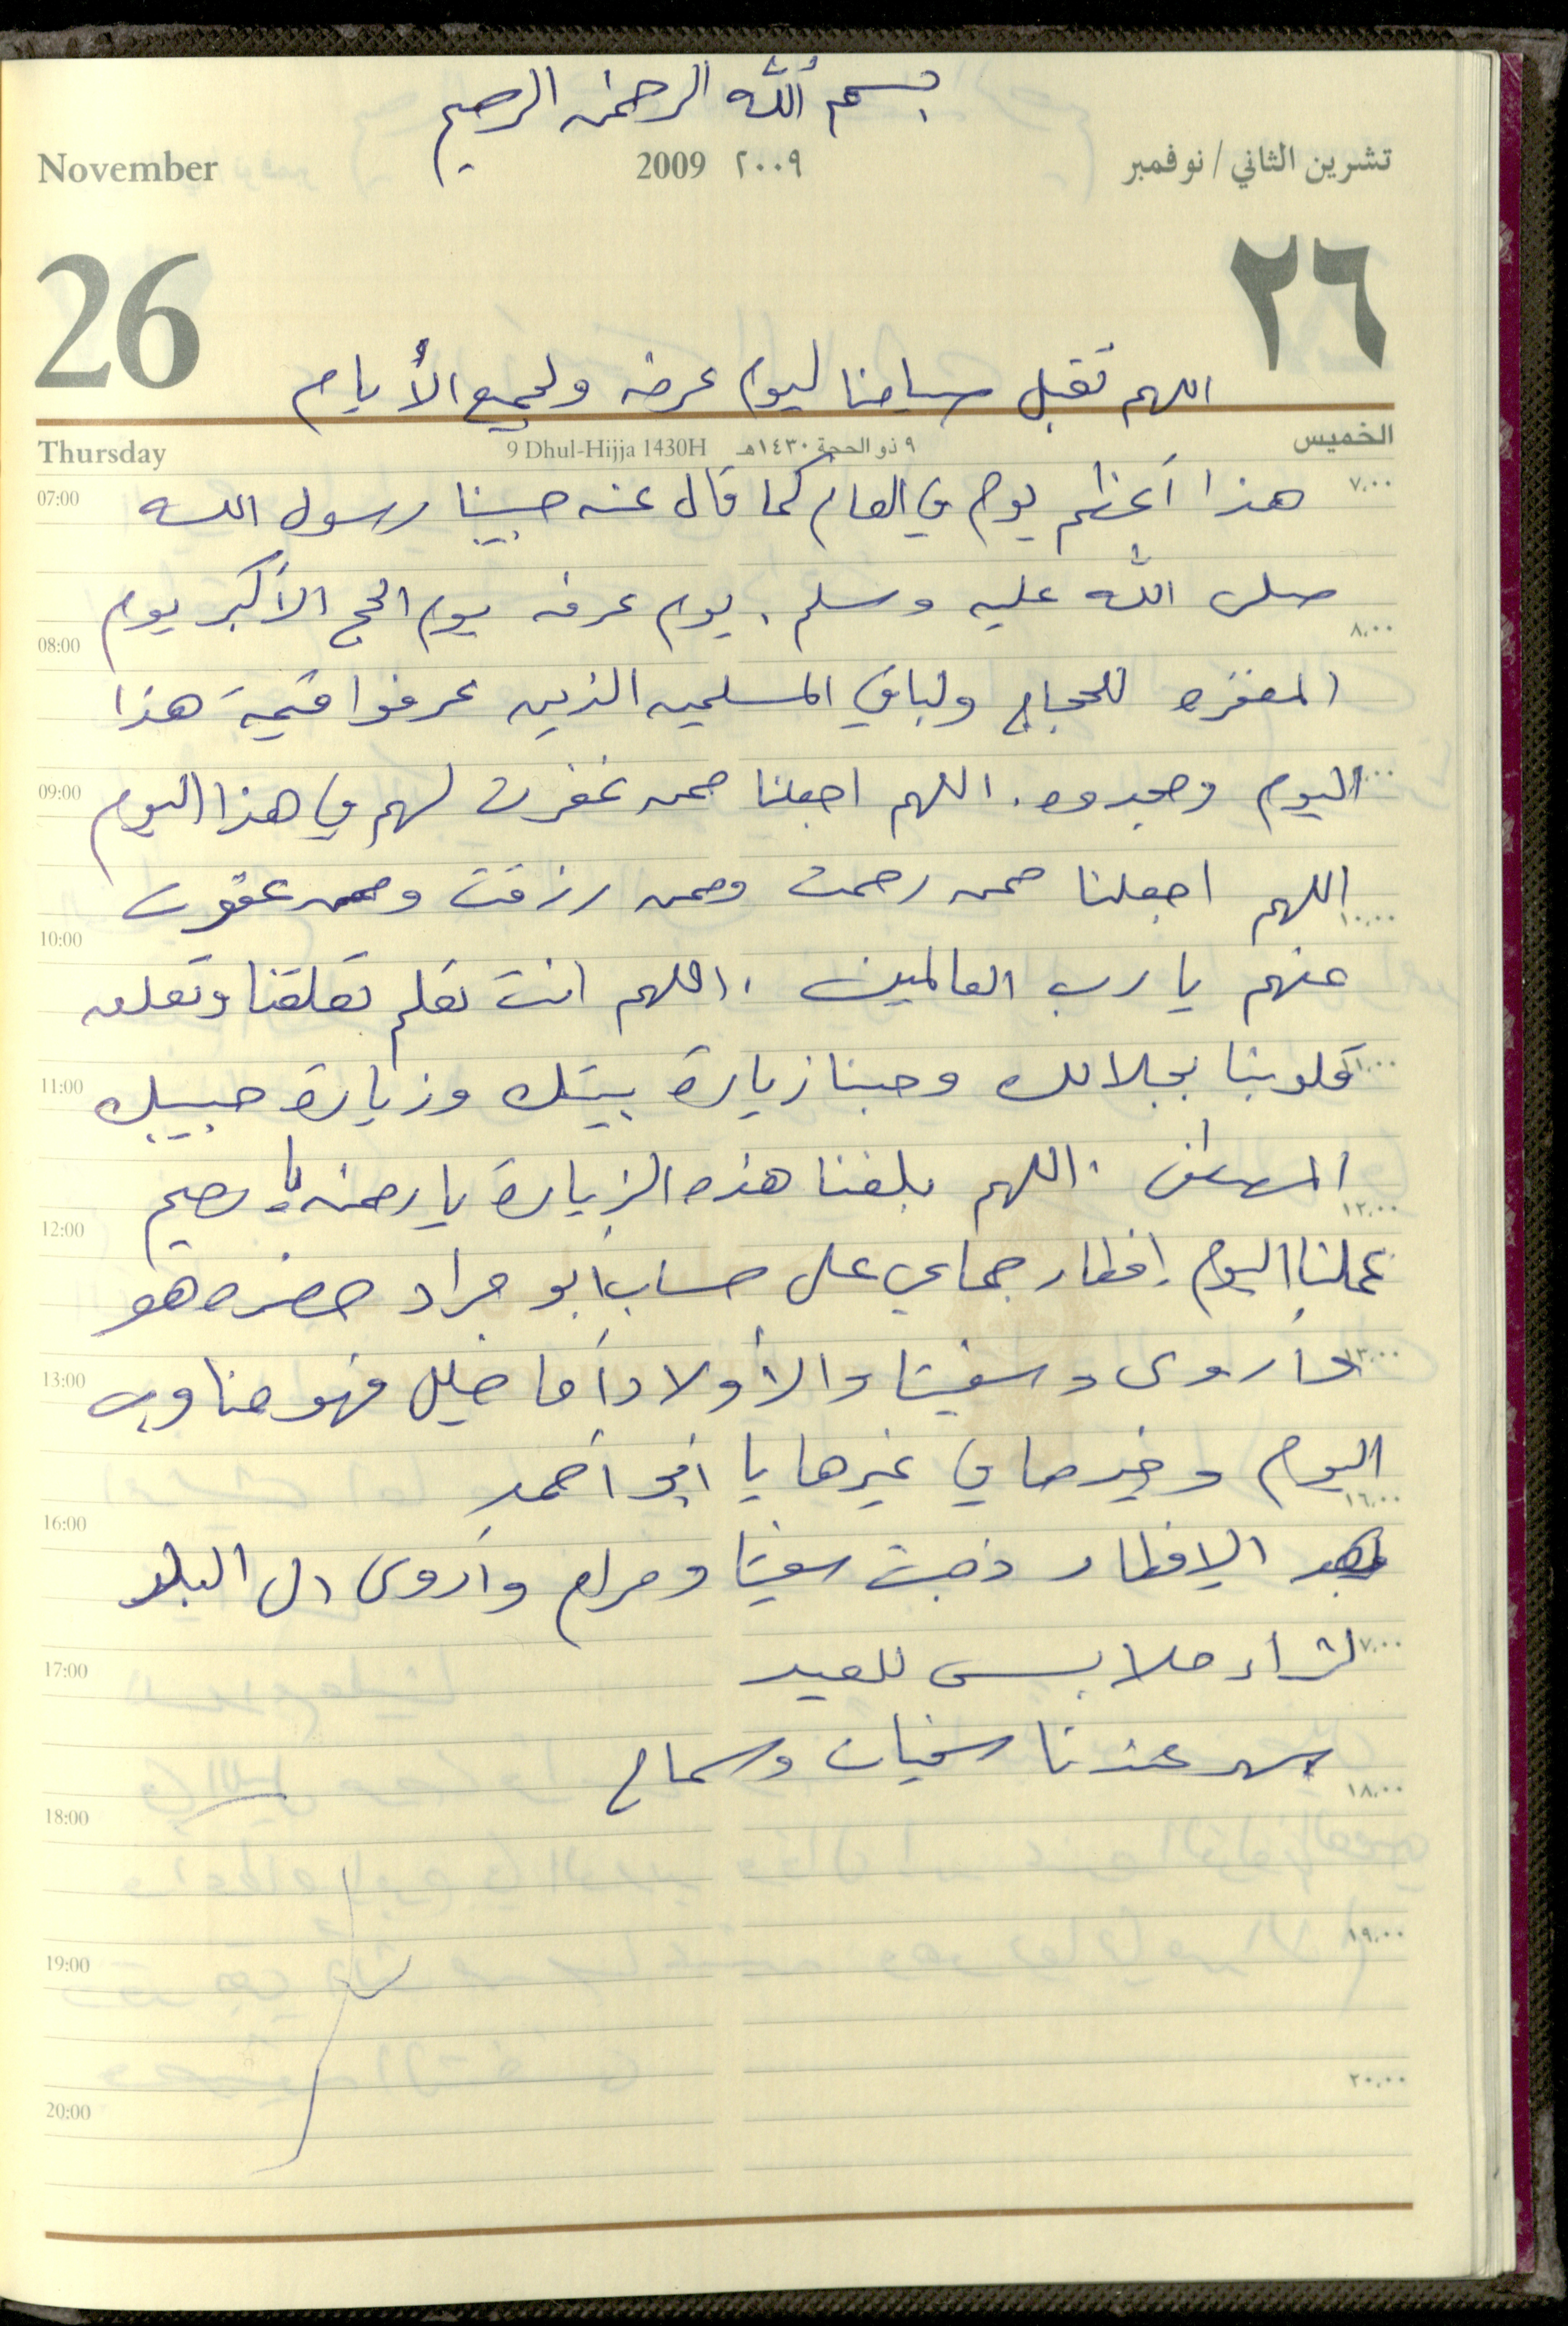 بسم الله الرحمن الرحيم
November 2009 ٢٠٠٩ تشرين الثاني / نوفمبر
26 ٢٦
اللهم تقبل صيامنا ليوم عرفه ولجميع الأيام
Thursday 9 Dhul-Hijja 1430H ٩ ذو الحجة ١٤٣٠هـ الخميس
07:00 هذا أعظم يوم في العام كما قال عنه حبيبنا رسول الله ٧,٠٠
صلى الله عليه وسلم. يوم عرفه يوم الحج الأكبر يوم
08:00 ٨,٠٠
المغفره للحجاج ولباقي المسلمين الذين عرفوا قيمة هذا
09:00 اليوم ومجدوه. اللهم اجعلنا ممن غفرت لهم في هذا اليوم
اللهم اجعلنا ممن رحمت وممن رزقت وممن عفوت
10:00 ١٠,٠٠
عنهم يا رب العالمين. اللهم انت تعلم تعلقنا وتعلق
11:00 قلوبنا بجلالك وحبنا زيارة بيتك وزيارة حبيبك
المصطفى. اللهم بلغنا هذه الزيارة يا رحمن يا رحيم
12:00 ١٢,٠٠
عملنا اليوم إفطار جماعي على حساب أبو مراد حضره هو
13:00 وأروى وسفيتا والأولاد أما خليل فهو مناوب ١٣,٠٠
اليوم وخيرها في غيرها يا ابو أحمد
16:00 ١٦,٠٠
بعد الإفطار ذهبت سفيتا ومرام وأروى الى البلد
17:00 لشراء ملابس للعيد
سهر عندنا سفيان وسماح
18:00 ١٨,٠٠
19:00 ١٩,٠٠
20:00 ٢٠,٠٠